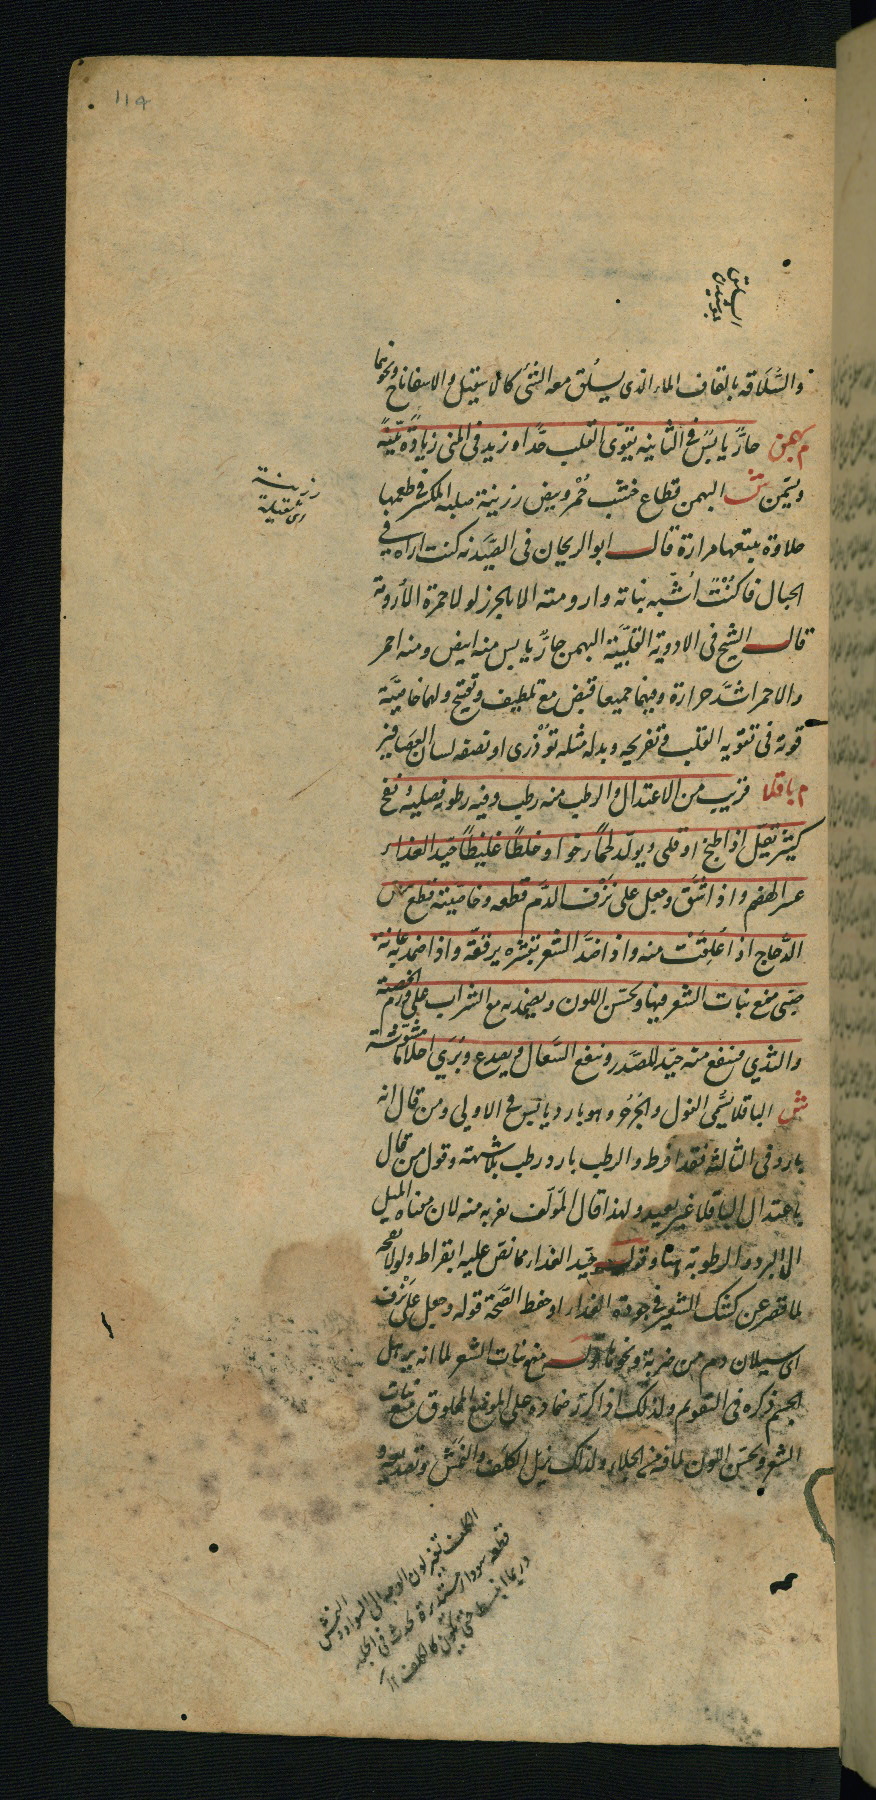 119
السلق
جوشیدن
والسُّلاقه بالقاف الماء الذى يسلق معه الشئ كالاسقيل والاسفاناخ ونحوهما
م بهمن حارّ يابسٌ فى الثانيه يقوّى القلب جدّا ويزيد فى المنى زيادةً بيّنةً
ويسمن ش البهمن قطاع خشب حُمْر وبيض رزينة صلبه المكسر فى طعمها
رزينة
اى ثقيلة
حلاوة يتبعها مرارة قال ابو الريحان فى الصَّيدنه كنت اراه فى
الجبال فاكنْتُ اُشبّه نباته وارومته الا بالجزر لولا حمرة الأرومة
قال الشيخ فى الادوية القلبيّة البهمن حارّ يابس منه ابيض ومنه احمر
والاحمر اشدّ حرارة وفيهما جميعا قبض مع تلطيف وتفتيح ولهما خاصيّة
قوية فى تقويه القلب وتفريحه وبدله مثله تُوذرى او نصفه لسان العصافير
م باقلا قريب من الاعتدال والرطب منه رطب وفيه رطوبه فضليه ونفخ
كثير تقلّ اذا طبخ او قلى ويولّد لحماً رخوا وخلطاً غليظاً جيّد الغذاء
عسر الهضم واذا شقّ وجعل على نزف الدّم قطعه وخاصيته قطع بيض
الدّجاج اذا عَلِفَتْ منه واذا ضمّد الشعر بقشره يرقّقه واذا ضمد به عانة
صبى منع نبات الشعر فيها ويحسّن اللون ويضمد به مع الشراب على ورم الخصية
والثدي فينفع منه جيّد للصّدر وينفع السّعال ويصدع ويُري احلاما مشوّشة
ش الباقلا يسمّى الفول والجُرجُر وهو بارد يابس فى الاولى ومن قال انه
بارد فى الثالثة فقد افرط والرطب بارد رطب بلا شبهة وقول من قال
باعتدال الباقلا غير بعيد ولهذا قال المؤلف بقربه منه لان معناه الميل
الى البرد والرطوبة هناك وقوله جيّد الغذاء مما نصّ عليه ابقراط ولولا نفخه
لما قصر عن كشك الشعير فى جودة الغذاء او حفظ الصّحة قوله وجعل على نزف
اى سيلان دم من ضربة ونحوها قوله منع نبات الشعر لما انه يرهل
الجسم ذكره فى التقويم ولذلك اذا كرّر ضماده على الموضع المحلوق منع نبات
الشعر ويحسّن اللون لما فيه من الجلاء ولذلك يزيل الكلف والنمش وتصديعه و
الكلف تغير لون الوجه الى السواد والنمش
قطعه سوداء مستديرة تحدث فى الجلد
وربما انبسط حتى تكون كالكلف ١٢